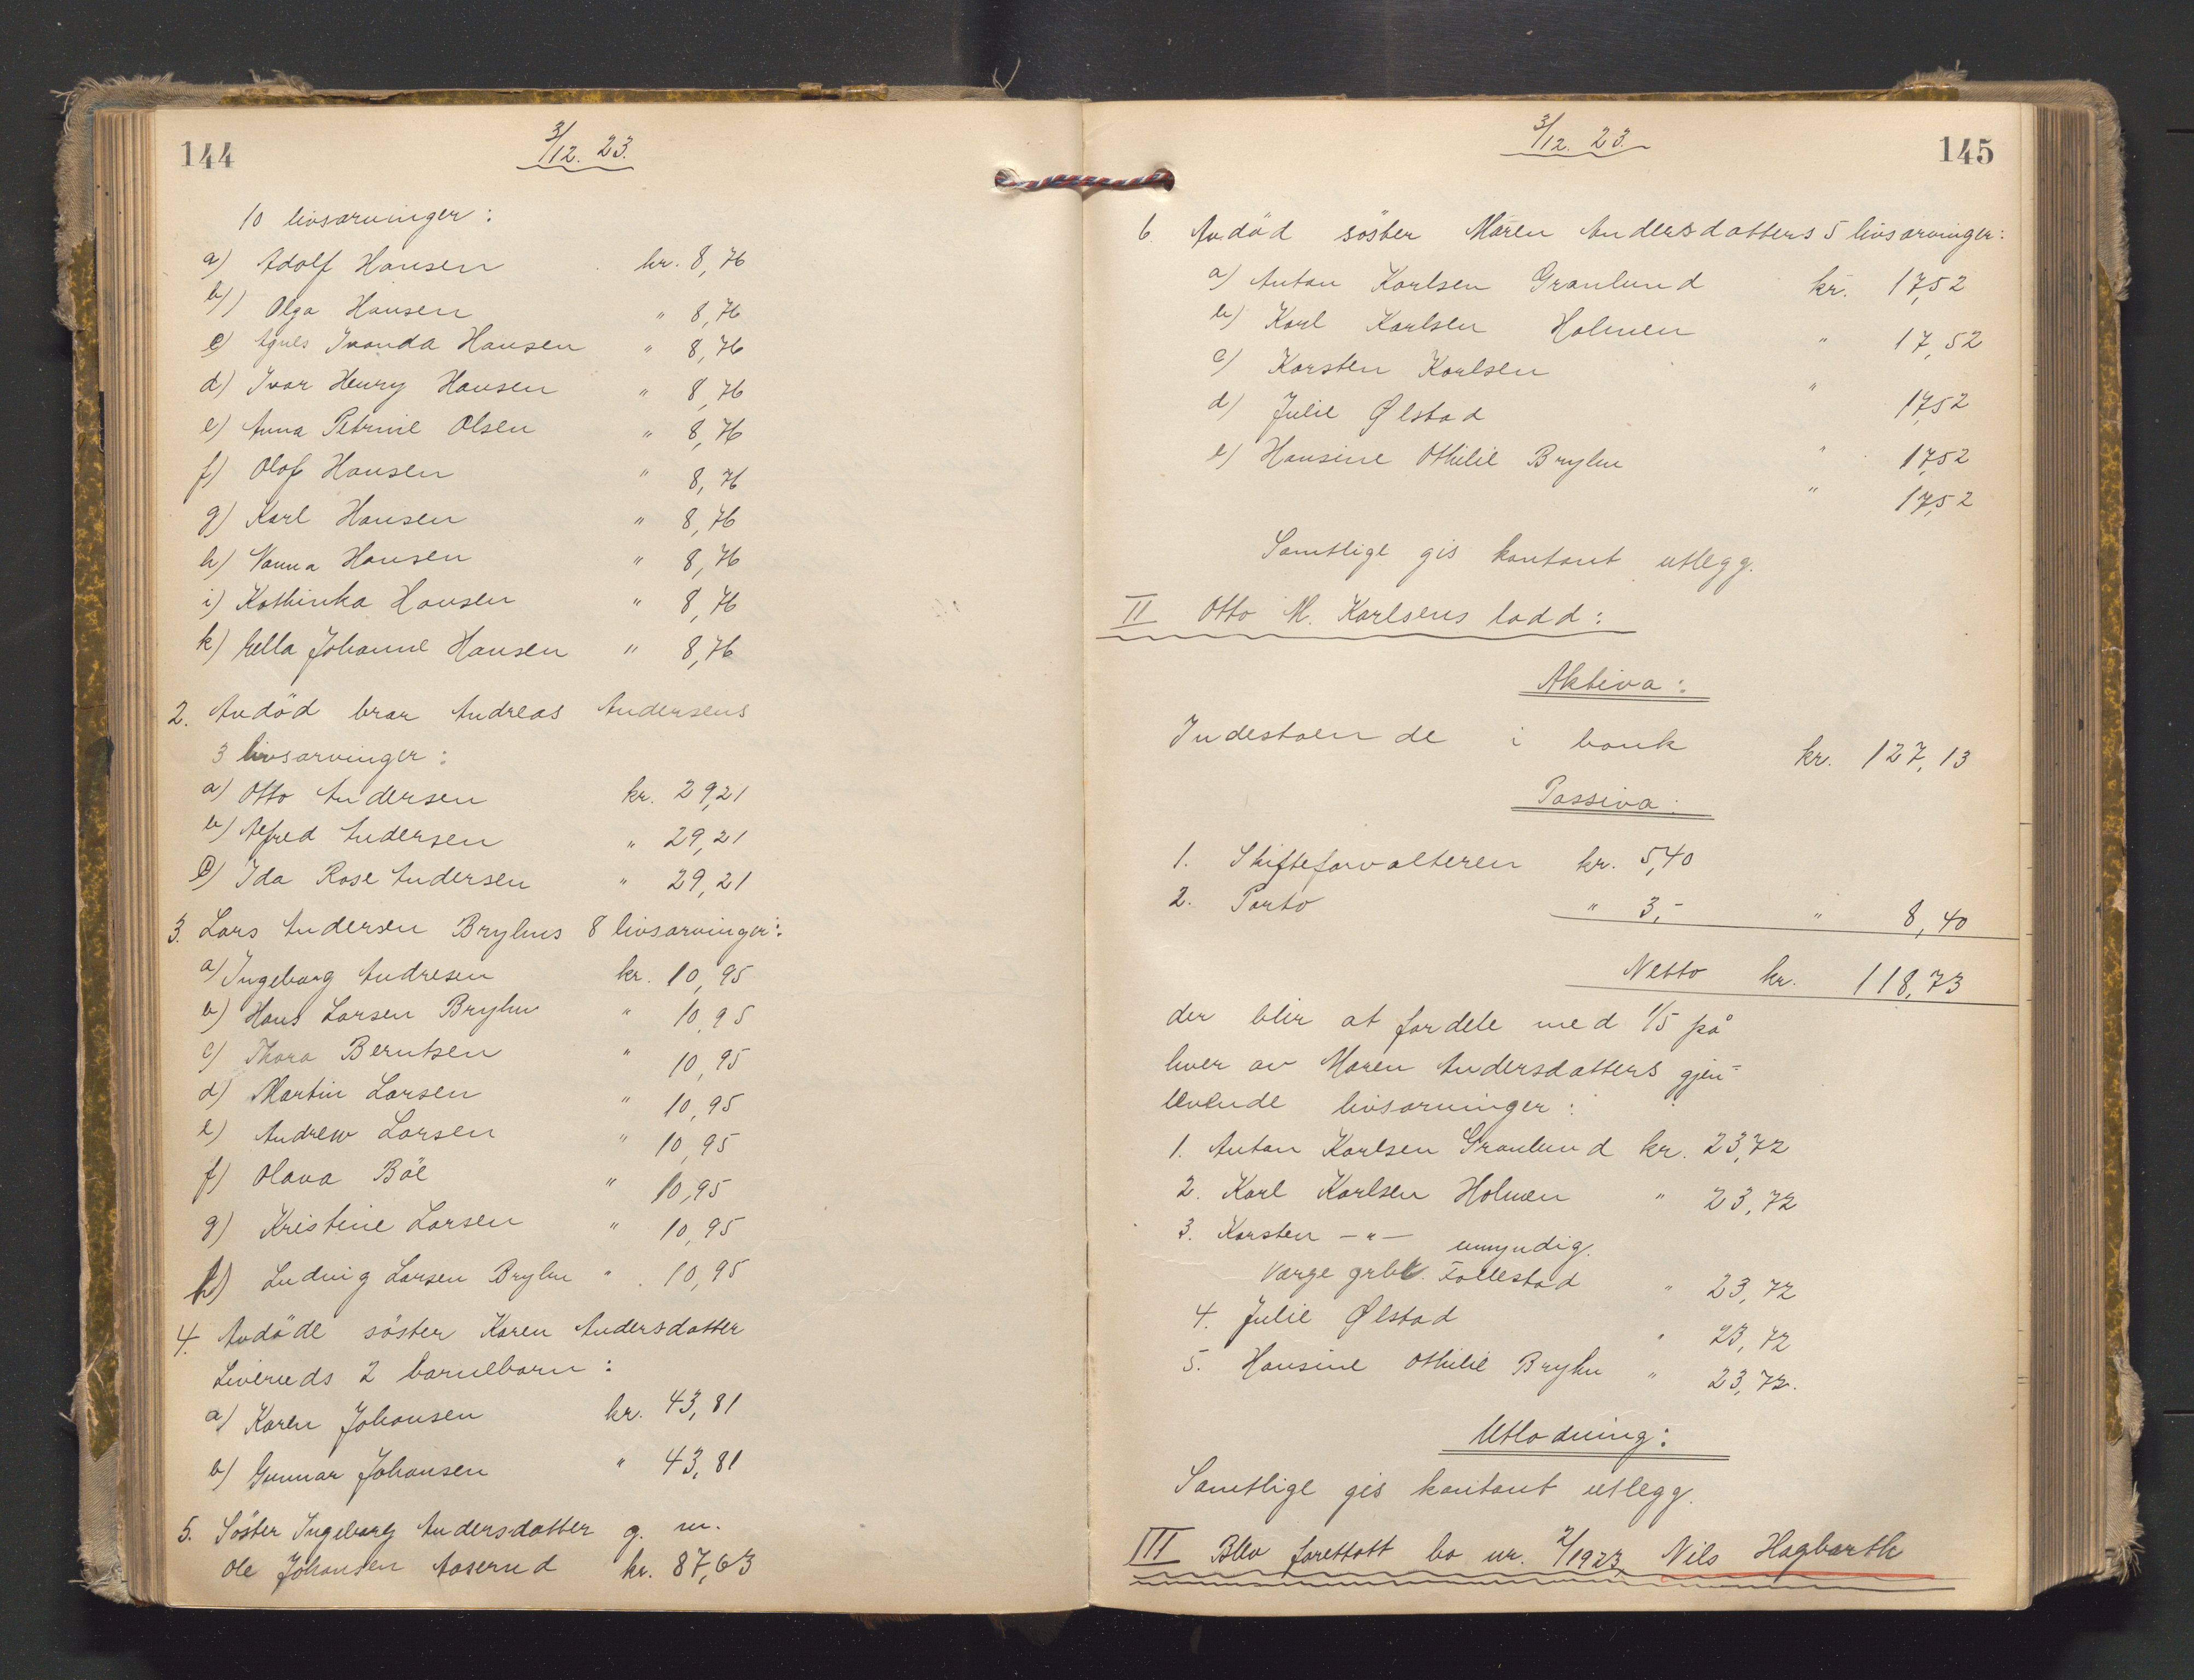 144
3/12. 23.
10 livsarvinger:
a) Adolf Hansen kr. 8,76
b) Olga Hansen " 8,76
c) Agnes Ivanda Hansen " 8,76
d) Ivar Henry Hansen " 8,76
e) Anna Petrine Olsen " 8,76
f) Olaf Hansen " 8,76
g) Karl Hansen " 8,76
h) Nanna Hansen " 8,76
i) Kathinka Hansen " 8,76
k) Hella Johanne Hansen " 8,76
2. Avdöd bror Andreas Andersens
3 livsarvinger:
a) Otto Andersen kr. 29,21
b) Alfred Andersen " 29,21
c) Ida Rose Andersen " 29,21
3. Lars Andersen Bryhns 8 livsarvinger:
a) Ingeborg Andresen kr. 10,95
b) Hans Larsen Bryhn " 10,95
c) Thora Berntsen " 10,95
d) Martin Larsen " 10,95
e) Andrew Larsen " 10,95
f) Olava Böe " 10,95
g) Kristine Larsen " 10,95
h) Ludvig Larsen Bryhn " 10,95
4. Avdöde söster Karen Andersdatter
Liveruds 2 barnebarn:
a) Karen Johansen kr. 43,81
b) Gunnar Johansen " 43,81
5. Söster Ingeborg Andersdatter g. m.
Ole Johansen Aaserud kr. 87,63
3/12. 23.
145
6. Avdöd söster Maren Andersdatters 5 livsarvinger:
a) Anton Karlsen Granlund kr. 17,52
b) Karl Karlsen Holmen " 17,52
c) Karsten Karlsen " 17,52
d) Julie Ølstad " 17,52
e) Hansine Othilie Bryhn " 17,52
Samtlige gis kontant utlegg.
II Otto M. Karlsens lodd:
Aktiva:
Indestaaende i bank kr. 127,13
Passiva:
1. Skifteforvalteren kr. 5,40
2. Porto " 3,- " 8,40
Netto kr. 118,73
der blir at fordele med 1/5 på
hver av Maren Andersdatters gjen-
levende livsarvinger:
1. Anton Karlsen Granlund kr. 23,72
2. Karl Karlsen Holmen " 23,72
3. Karsten -"- umyndig.
Verge grbr. Follestad " 23,72
4. Julie Ølstad " 23,72
5. Hansine Othilie Bryhn " 23,72.
Utlodning:
Samtlige gis kontant utlegg.
III Blev foretatt bo nr. 2/1923, Nils Hagbarth